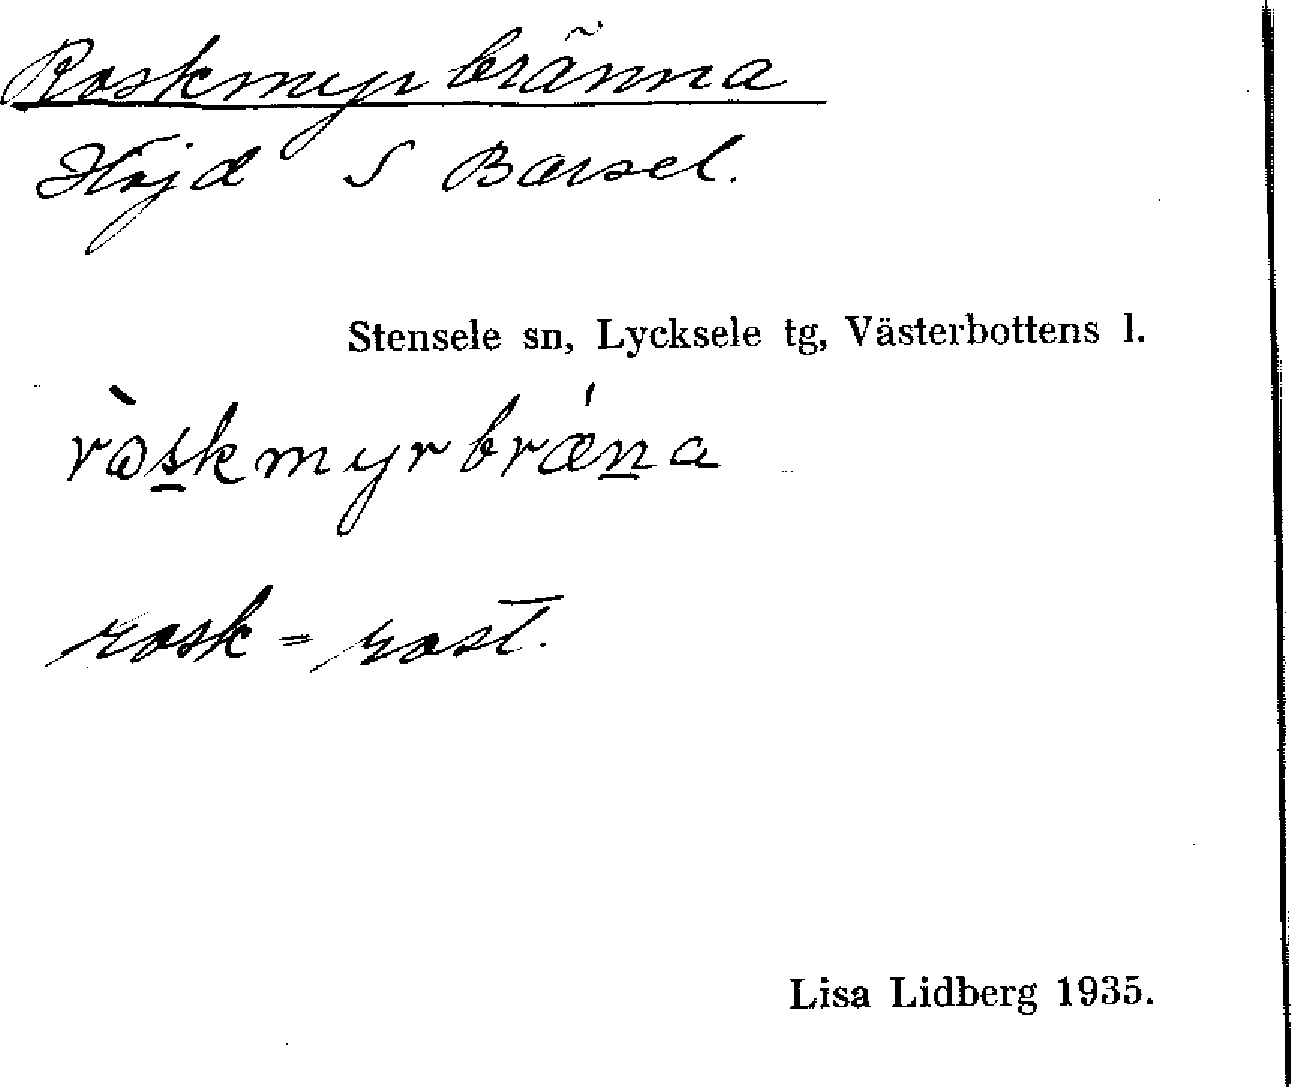 Roskmyrbränna
Höjd S Barsel.
Stensele sn, Lycksele tg, Västerbottens l.
ròskmyrbrǽna
rosk = rost.
Lisa Lidberg 1935.